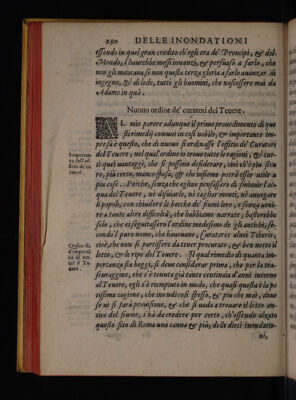 290 DELLE INONDATIONI
essendo in quel gran credito ch'egli era de' Prencipi, & del
Mondo, l'haurebbe messi innanzi, & persuasi a farlo, che
non gli mancaua se non questa terza gloria a farlo auanzar di
ingegno, & di lode, tutti gli huomini, che nascessero mai da
Adamo in quà.
Nuouo ordine de' curatori del Teuere.
AL mio parere adunque il primo prouedimento di que
sti rimedij communi in cosi nobile, & importante im-
presa è questo, che di nuouo si ordinasse l'offitio de' Curatori
del Teuere; nel qual ordine si trouin tutte le ragioni, & tut-
ti quei vantaggi, che si possino desiderare, cioè ch'ei sia sicu
ro, più certo, manco spesa, & che insieme potrà esser vtile a
più cose. Perche, senza che eglino pensassero di sminuir l'ac-
qua del Teuere, nè d'alzarli, nè tagliar monti, nè congrega
ti popoli, con chiudere le bocche de' fiumi loro, e senza veni-
re a tante altre difficoltà, che habbiamo narrate; basterebbe
solo, che si seguitasse l'ordine medesimo de gli antichi, se-
condo il puro nome, che haueuano, Curatores aluei Tiberis;
cioè, che non si partissero da tener procurato, & ben netto il
letto, & le ripe del Teuere. Il qual rimedio di quanta im-
portanza sia hoggi, si deue considerar prima, che per la tra-
scuraggine, che s'è tenuta già tante centinaia d'anni intorno
al Teuere, egli s'è riempiuto in modo, che quasi questa è la po
tissima cagione, che inondi così spesso, & più che mai, doue
se ui si farà prouisione, & che si uada a trouare il letto an-
tico del fiume, s'hà da credere per certo, ch'essendo alzato
questo sito di Roma una canna & più, delle dieci inondatio-
ni,
Importan
za dell'of-
ficio de' cu
ratori.
Teuere.